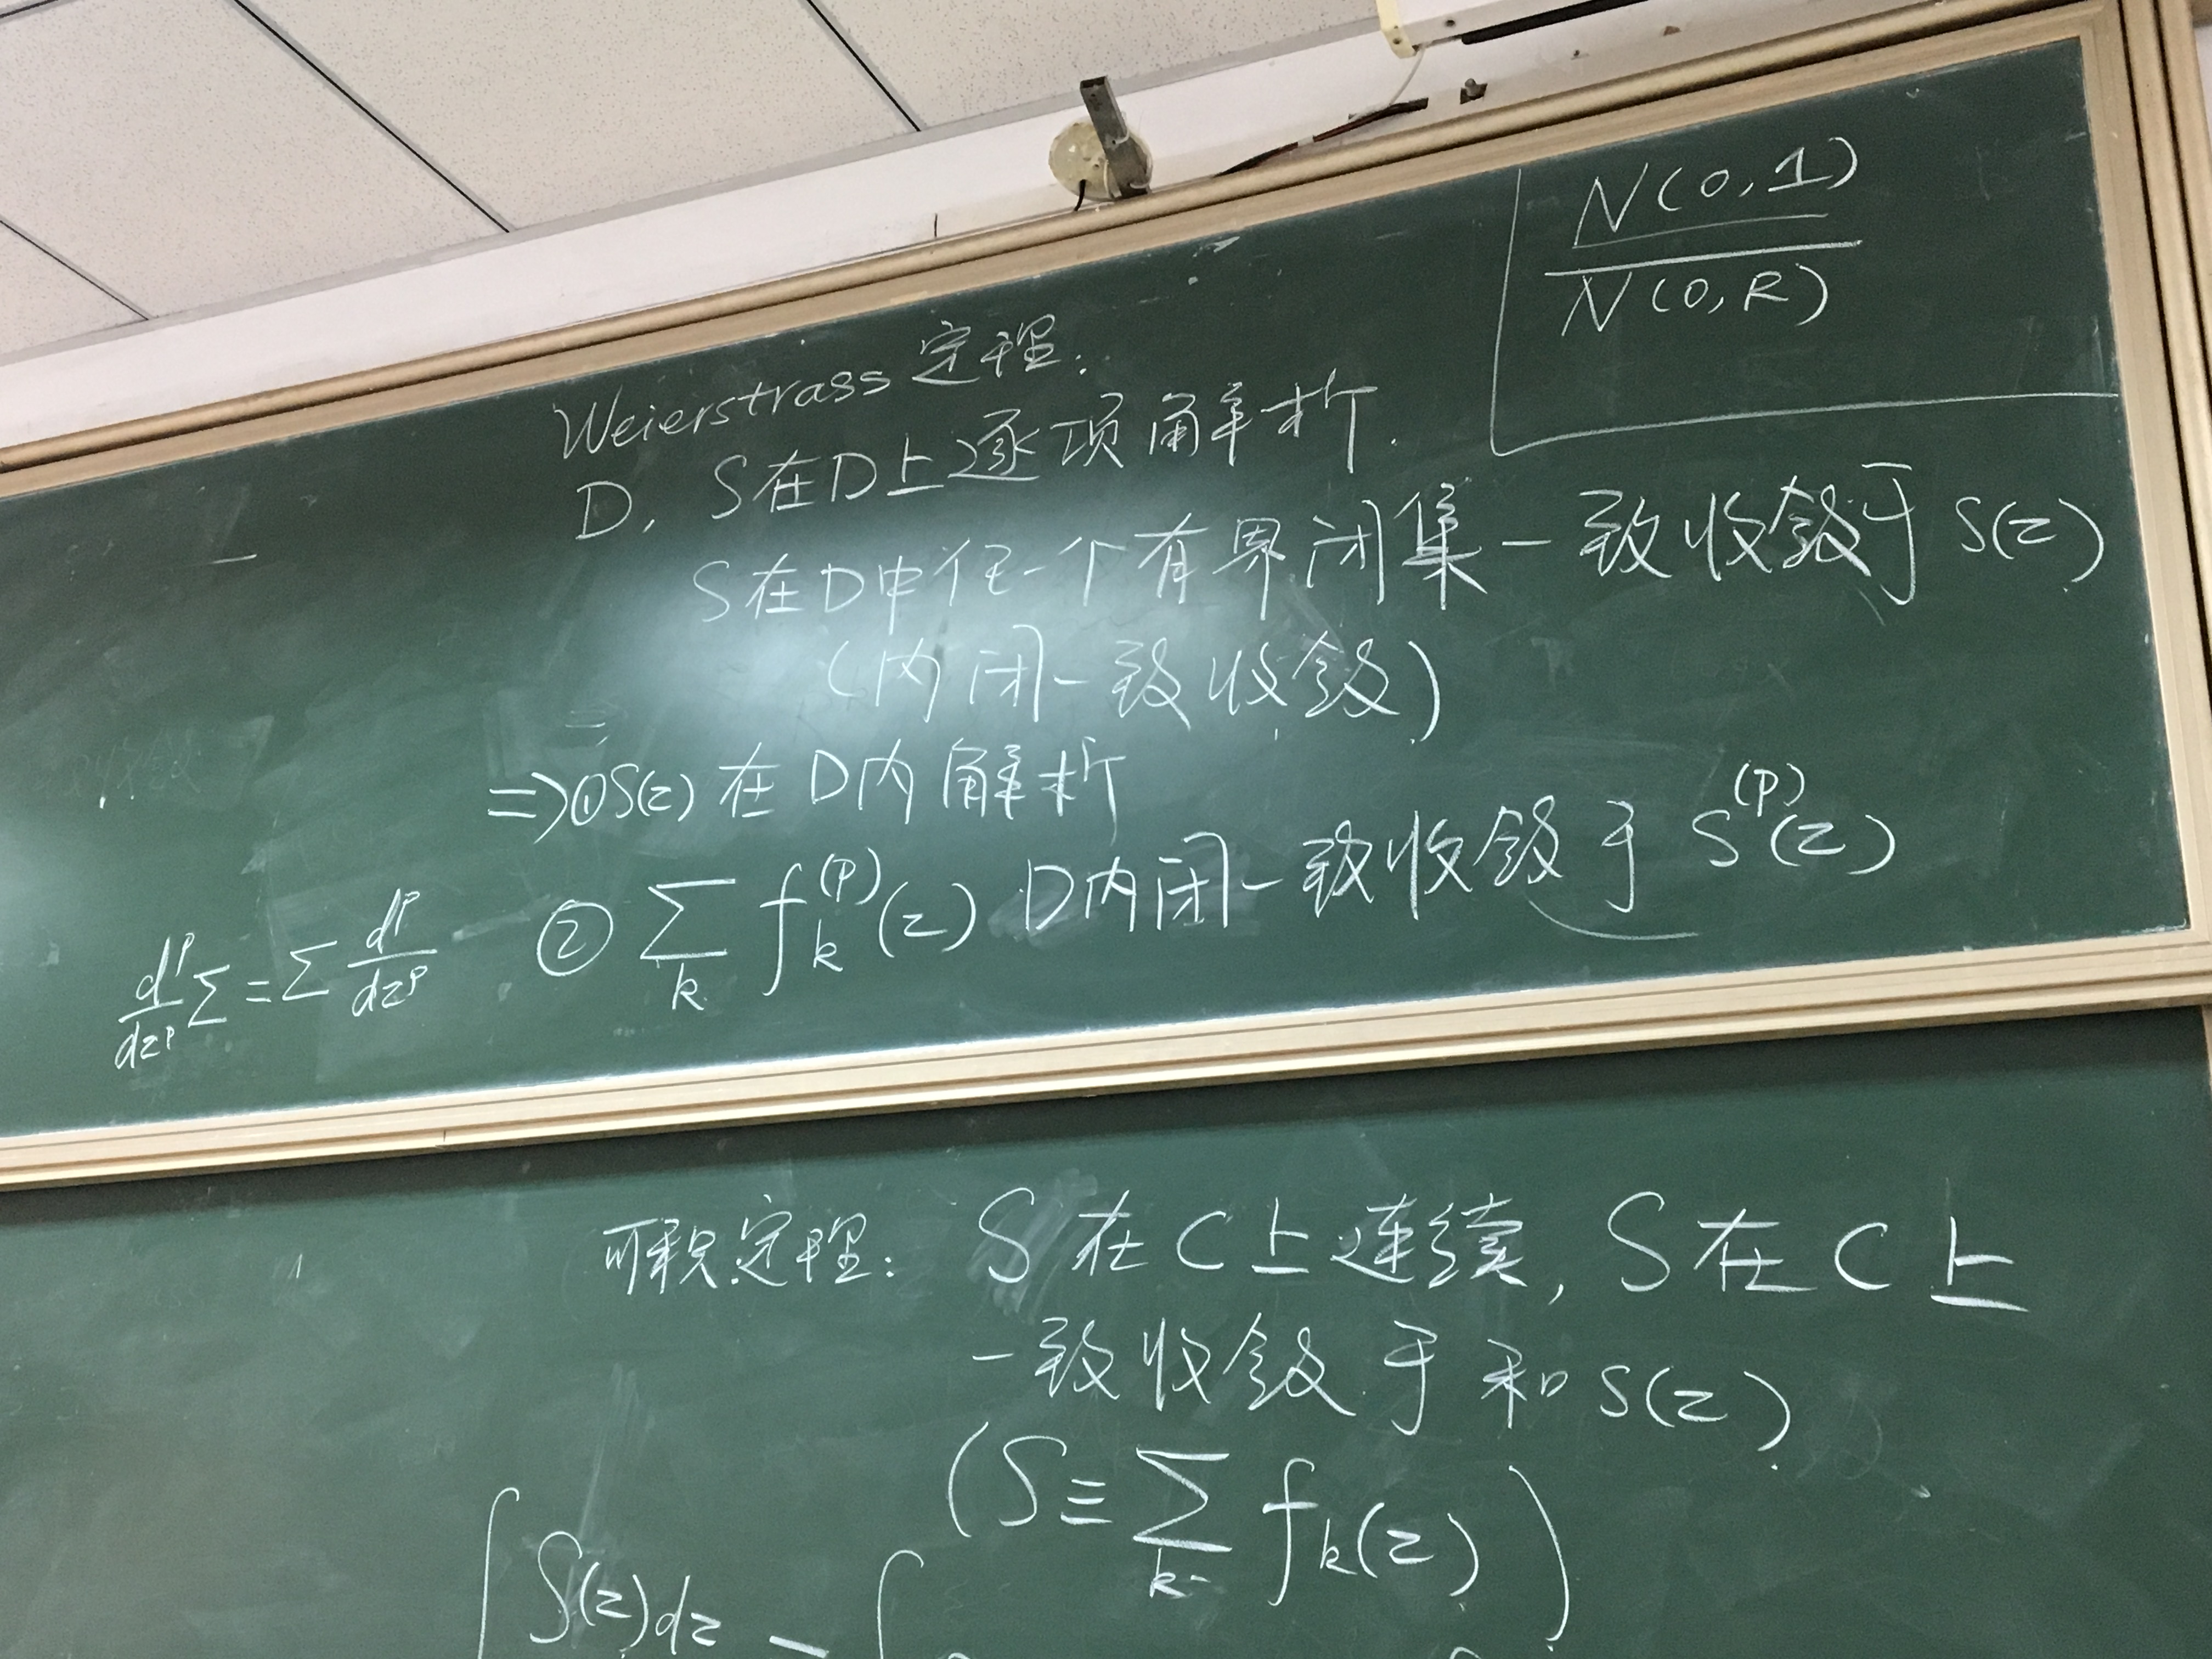 N(0,1)
N(0,R)
Weierstrass 定理:
D, S在D上逐项解析.
S在D中任一个有界闭集一致收敛于 S(z)
(内闭一致收敛)
⇒①S(z) 在 D内 解析
② ∑_k f_k^{(p)}(z) D内闭一致收敛于 S^{(p)}(z)
d^p/dz^p ∑ = ∑ d^p/dz^p
可积定理: S 在 C 上连续, S 在 C 上
一致收敛于和 S(z)
(S ≡ ∑_k f_k(z))
∫ S(z)dz = ∫